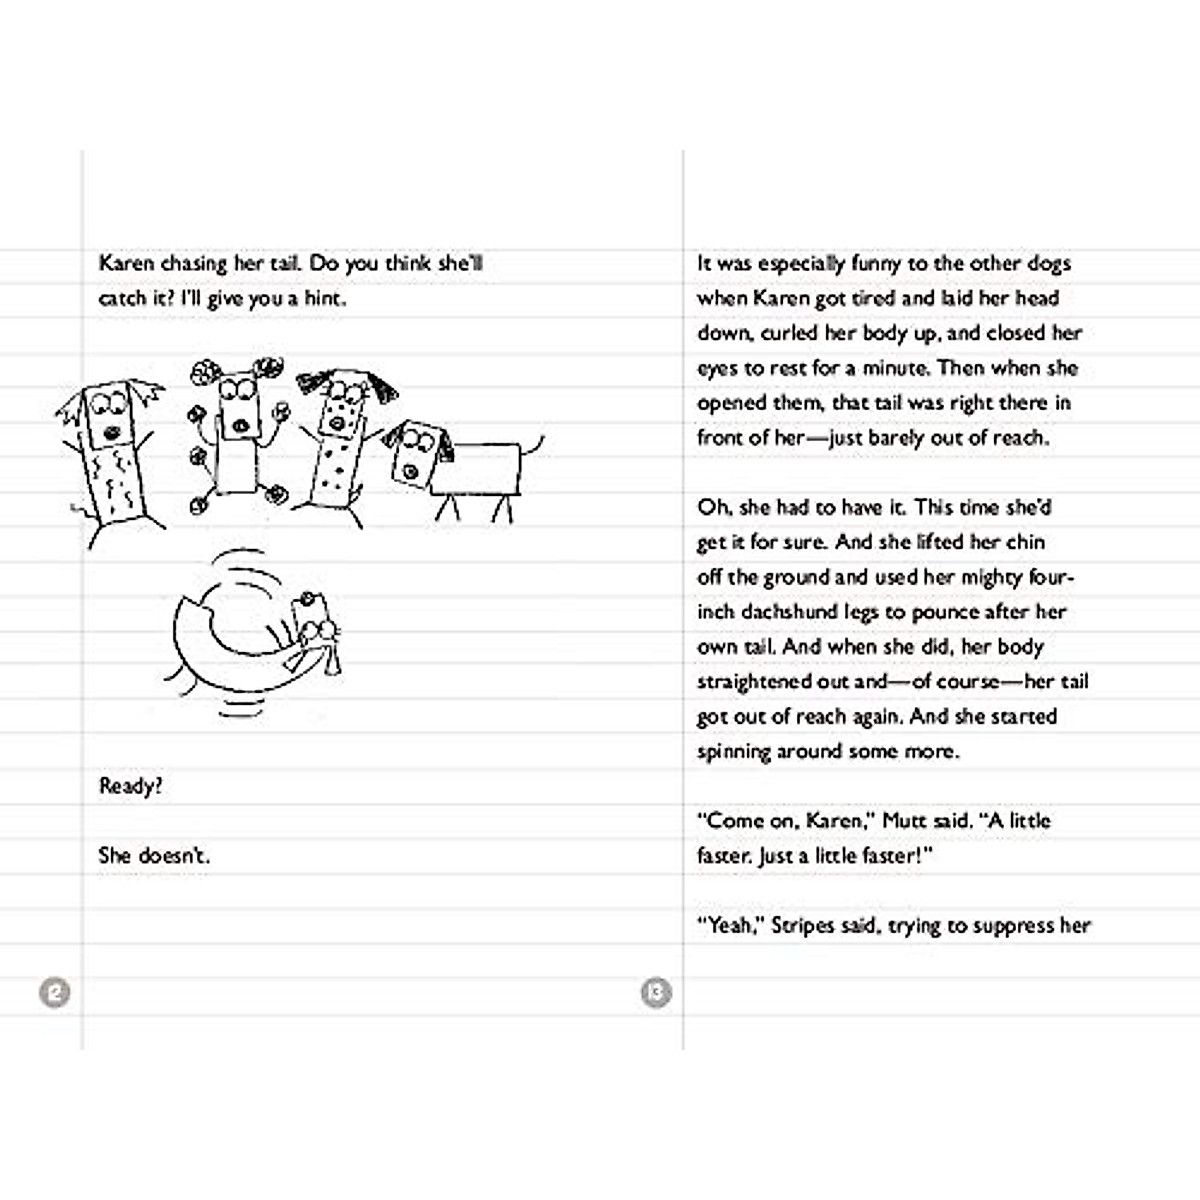 Karen chasing her tail. Do you think she'll
catch it? I'll give you a hint.
Ready?
She doesn't.
12
It was especially funny to the other dogs
when Karen got tired and laid her head
down, curled her body up, and closed her
eyes to rest for a minute. Then when she
opened them, that tail was right there in
front of her—just barely out of reach.
Oh, she had to have it. This time she'd
get it for sure. And she lifted her chin
off the ground and used her mighty four-
inch dachshund legs to pounce after her
own tail. And when she did, her body
straightened out and—of course—her tail
got out of reach again. And she started
spinning around some more.
“Come on, Karen,” Mutt said. “A little
faster. Just a little faster!”
“Yeah,” Stripes said, trying to suppress her
13